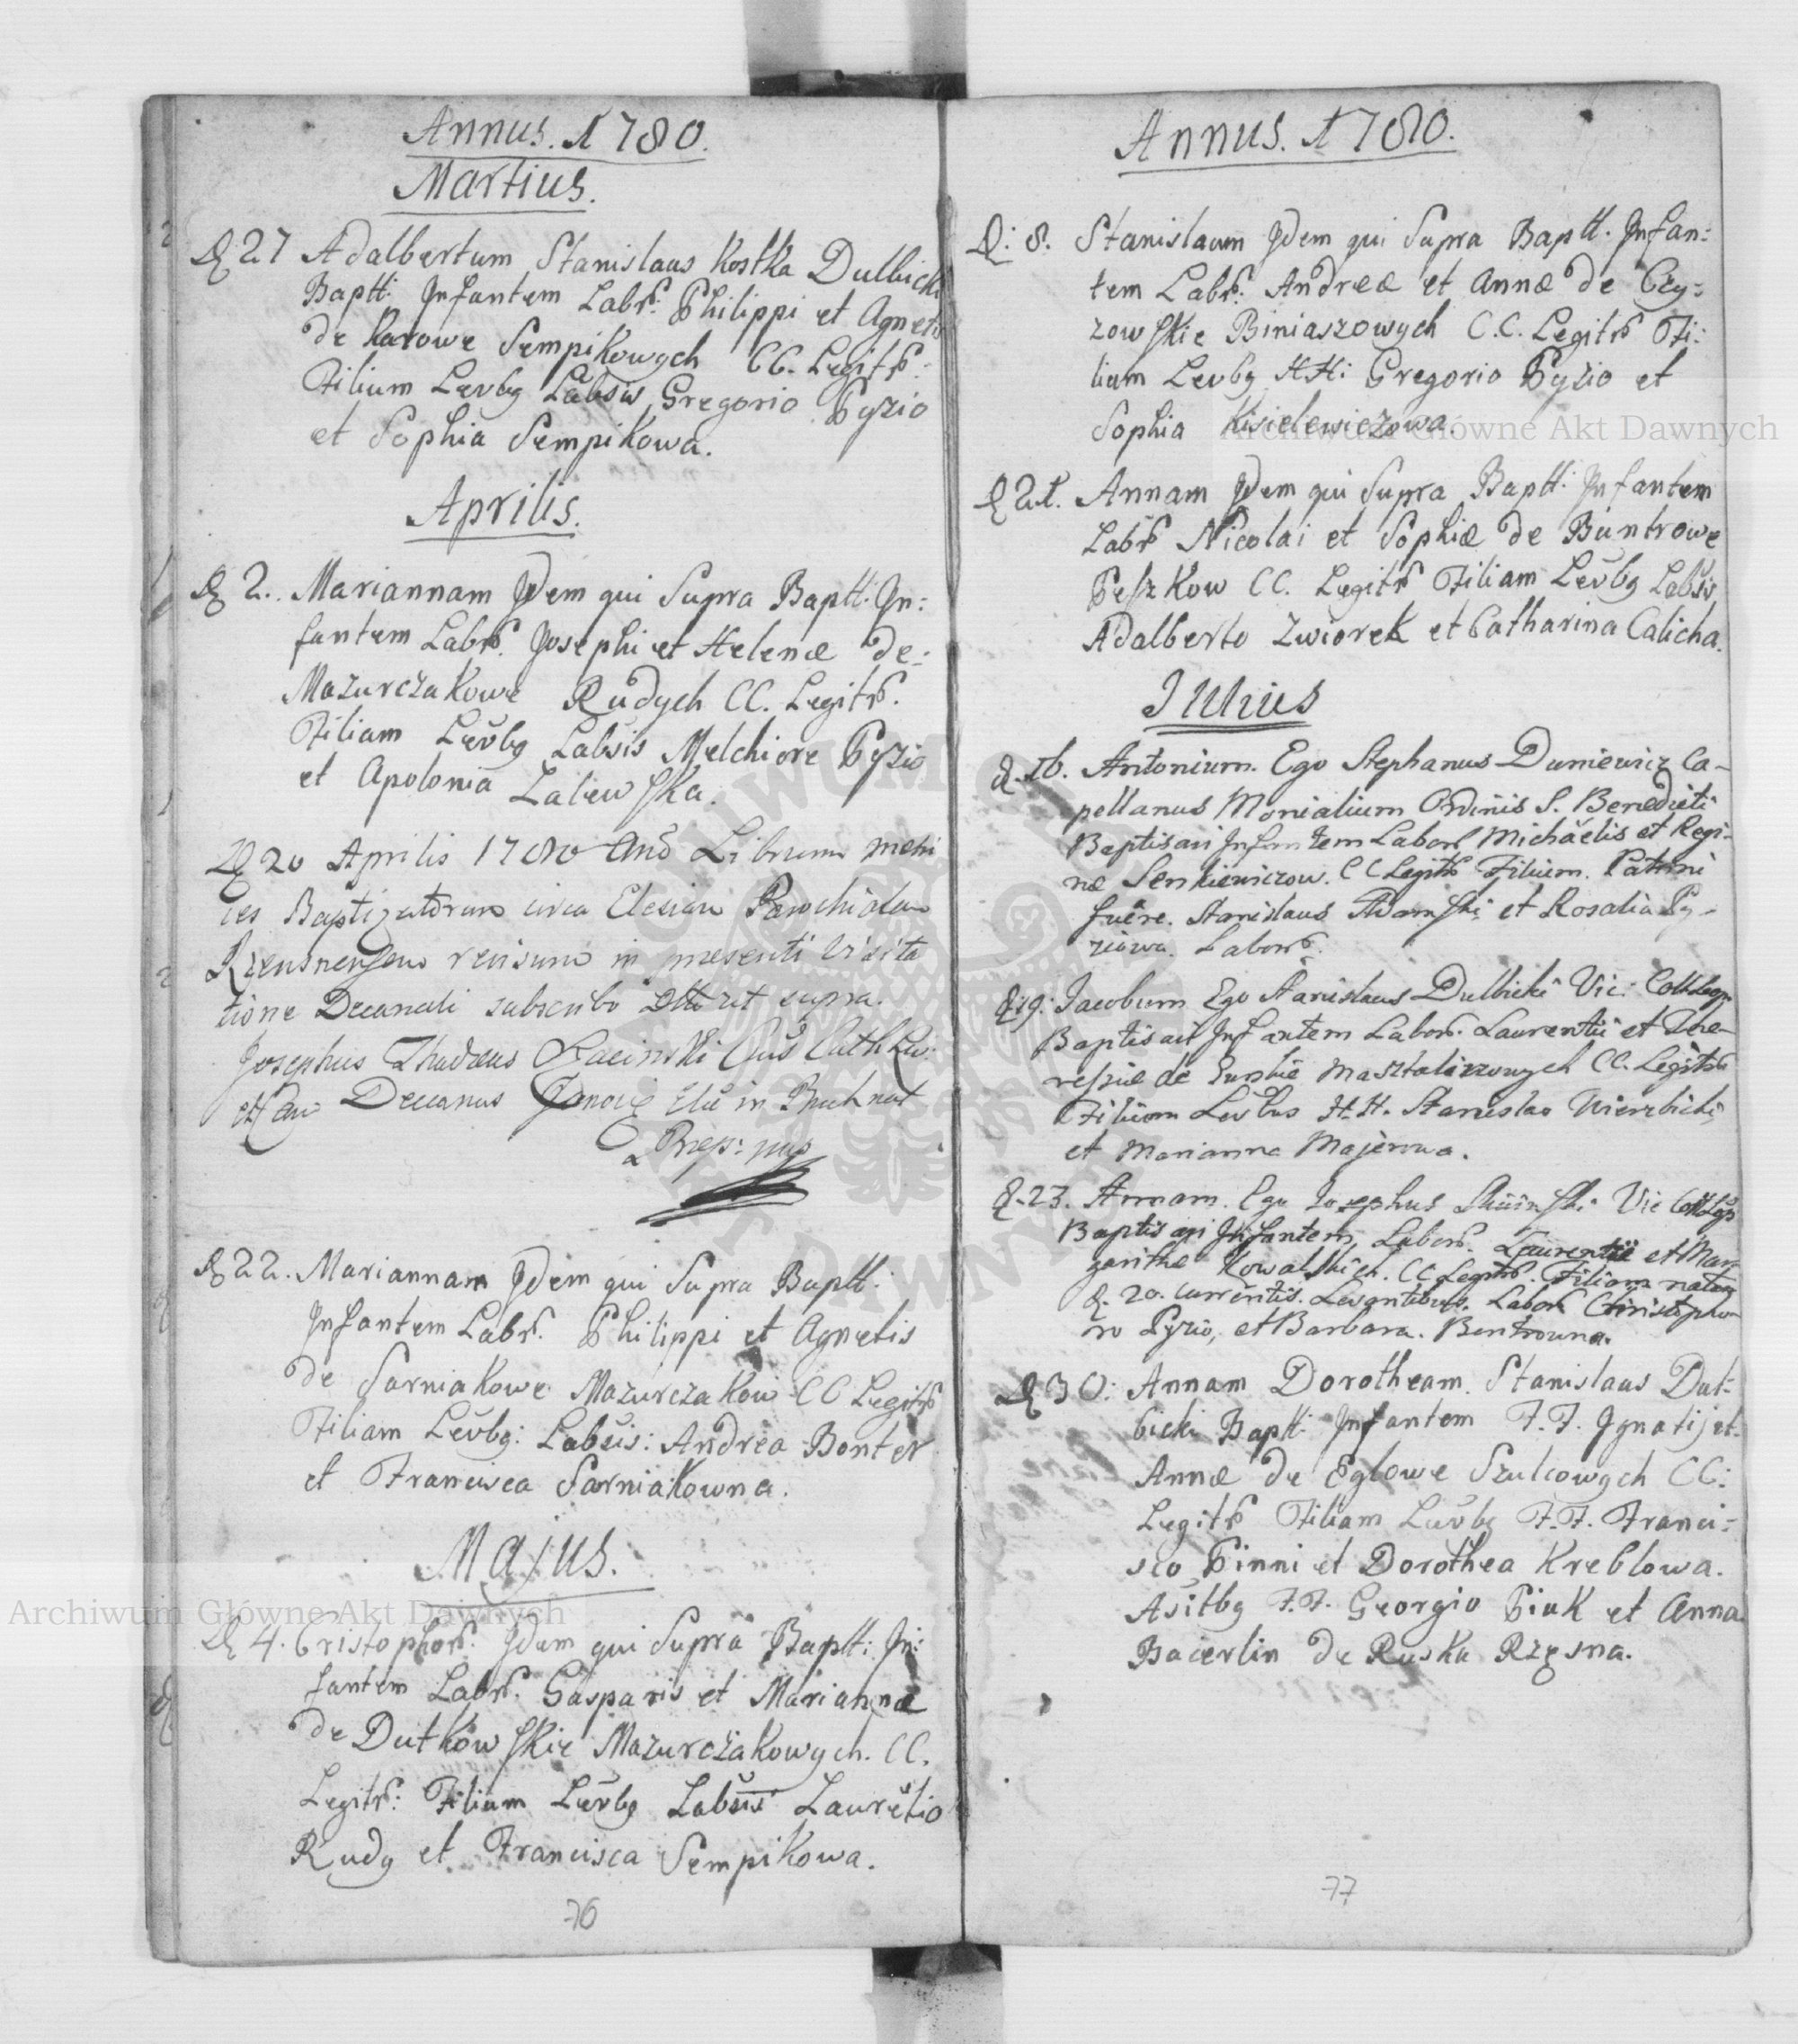 Annus. 1780.
Martius.
D 27 Adalbertum Stanislaus Kostka Dulbicki
Baptt: Infantem Labr: Philippi et Agnetis
de Karowe Sempikowych CC. Legitr:
Filium Levbg Labsis Gregorio Pyzio
et Sophia Sempikowa.
Aprilis.
D 2. Mariannam Idem qui Supra Baptt: In:
fantem Labr. Josephi et Helenæ de:
Mazurczakowe Rudych CC. Legitr.
Filiam Levbg Labsis Melchiore Pyzio
et Apolonia Zalewska.
D 20 Aprilis 1780 Librum
Baptizatorum circa
revisum in presenti Visita
tione Decanali subscribo ut supra.
Josephus Thadæus
Decanus in
D 22. Mariannam Idem qui Supra Baptt:
Infantem Labr. Philippi et Agnetis
de Sarniakowe Mazurczakow CC Legitr
Filiam Levbg: Labsis: Andrea Bonter
et Francisca Sarniakowna.
Majus.
D 4. Cristophor. Idem qui Supra Baptt: In:
fantem Labr. Gasparis et Mariannæ
de Dutkowskie Mazurczakowych. CC.
Legitr: Filium Levbg Labsis Lauretio
Rudy et Francisca Sempikowa.
76
Annus. 1780.
D: 8. Stanislaum Idem qui Supra Baptt. Infan:
tem Labr: Andreæ et Annæ de Czy:
zowskie Biniaszowych C.C. Legitr Fi:
lium Levbg HH: Gregorio Pyzio et
Sophia Kisielewiczowa.
D 21. Annam Idem qui Supra Baptt: Infantem
Labr Nicolai et Sophiæ de Buntrowe
Peszkow CC. Legitr Filiam Levbg Labsis
Adalberto Zwiorek et Catharina Calicha.
Julius
D. 16. Antonium. Ego Stephanus Duniewicz Ca-
pellanus Monialium Ordinis S. Benedicti
Baptisavi Infantem Labor Michaelis et Regi-
næ Senkiewiczow. CC Legitr Filium. Patrini
fuere. Stanislaus Adamski et Rosalia Py-
ziowa. Labor.
D 19: Jacobum Ego Stanislaus Dulbicki Vic:
Baptisavi Infantem Labor. Laurentii et The-
resiæ de Masztalerzowych CC. Legitr
Filium Levbus H.H. Stanislao Wierzbicki
et Marianna Majerowa.
D. 23. Annam. Ego Josephus Vic
Baptisavi Infantem Labor. Laurentii et Mar
garithæ Kowalskich. CC Legitr. Filiam natam
D. 20. currentis. Levantibus. Labor Christopho
ro Pyzio, et Barbara. Bentrowna.
D 30: Annam Dorotheam. Stanislaus Dul-
bicki Baptt: Infantem F.F. Ignatij et
Annæ de Eglowe Szulcowych CC:
Legitr Filiam Levbg F.F. Franci:
sco Pinni et Dorothea Kreblowa.
Asitbg F.F. Georgio Piuk et Anna
Bacerlin de Ruska Rzęsna.
77
Archiwum Główne Akt Dawnych
Archiwum Główne Akt Dawnych